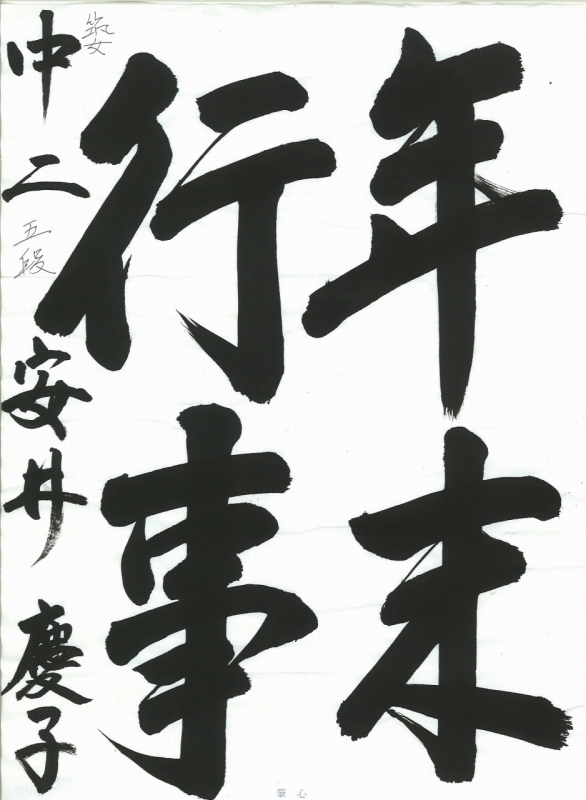 年末
行事
中二 五段 安井慶子
心筆